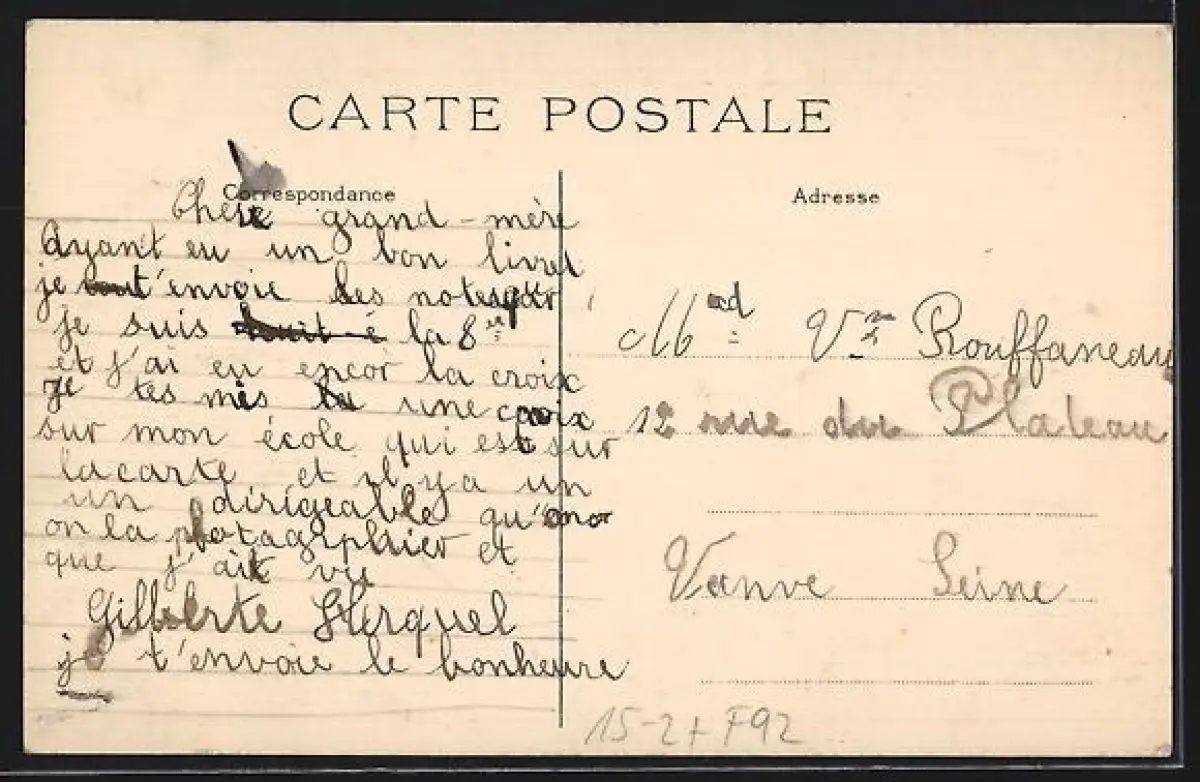 CARTE POSTALE
Correspondance
Adresse
Chere grand-mère
Ayant eu un bon livret
je t'envoie les notes
je suis la 8
et j'ai eu encor la croix
je tes mis une croix
sur mon école qui est sur
lacarte et il y a un
un dirigeable qu'
on la photagrphier et
que j'ait vu
Gilberte Herquel
je t'envoie le bonheure
Vve Rouffaneau
12 rue du Plateau
Vanve Seine
15-2+ F92